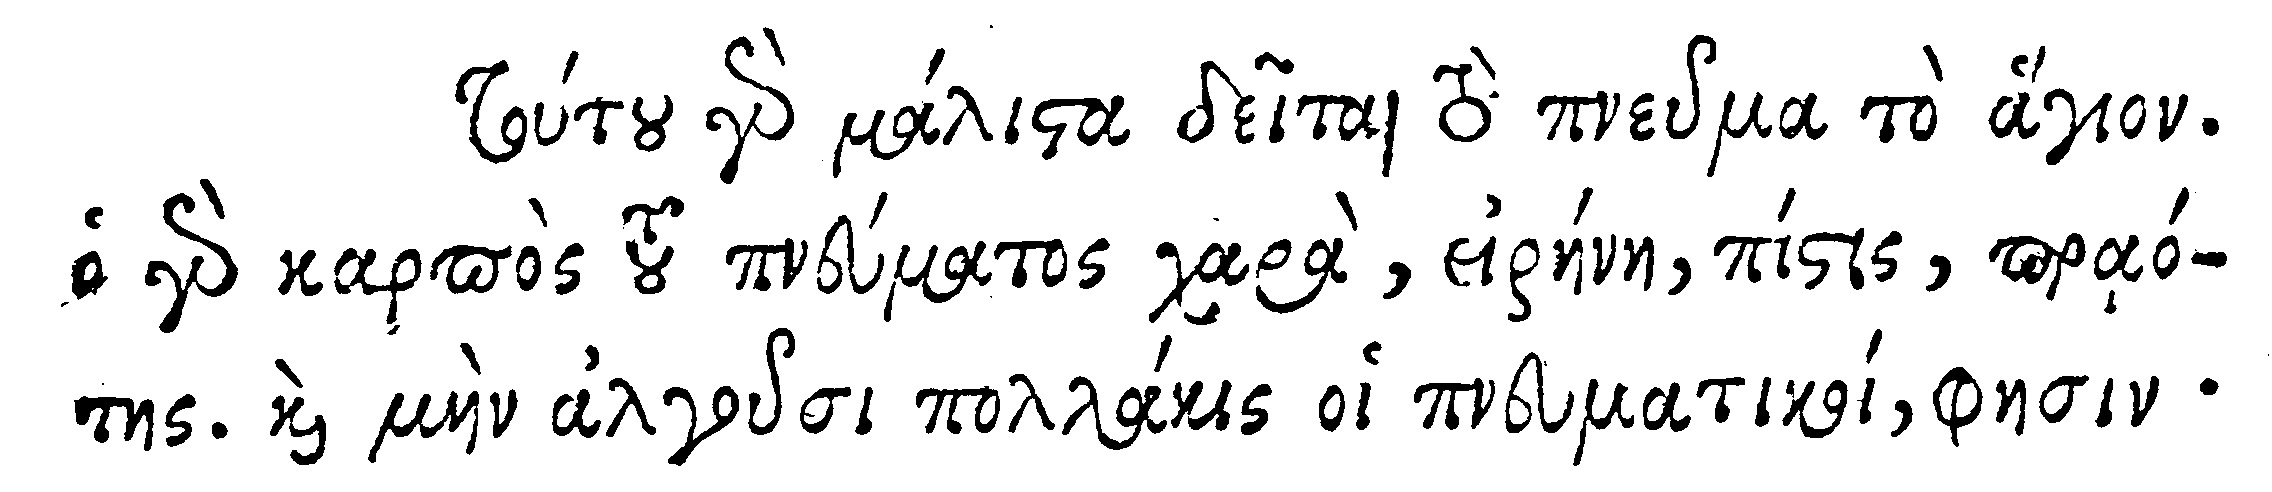 τούτου γὰρ μάλιστα δεῖται τὸ πνεῦμα τὸ ἅγιον.
ὁ γὰρ καρπὸς τοῦ πνεύματος χαρὰ, εἰρήνη, πίστις, πραό-
της. καὶ μὴν ἀλγοῦσι πολλάκις οἱ πνευματικοί, φησιν.